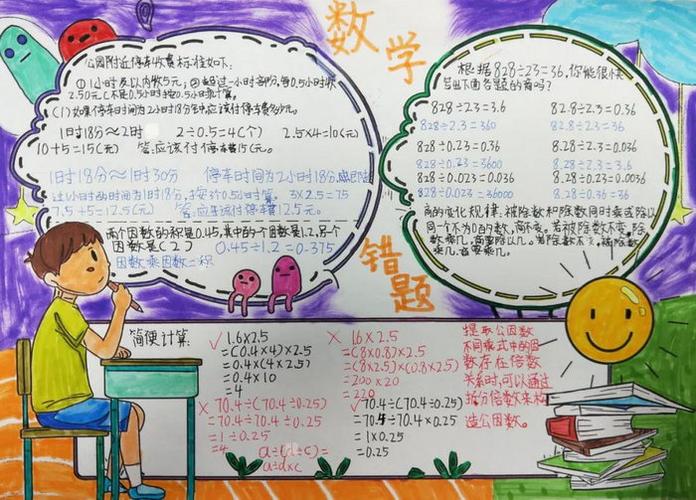 数学
错题
公园附近停车收费标准如下:
①1小时及以内收5元;②超过一小时部分,每0.5小时收
2.50元(不足0.5小时按0.5小时计算。
(1)如果停车时间为2小时18分钟,应该付停车费多少元。
1时18分≈2时 2÷0.5=4(个) 2.5×4=10(元)
10+5=15(元) 答:应该付停车费15(元)。
1时18分≈1时30分 停车时间为2小时18分,
过1小时的时间为1时18分,按3个0.5小时算。3×2.5=7.5
7.5+5=12.5(元) 答:应付停车费12.5元。
两个因数的积是0.45,其中的一个因数是1.2,另个
因数是(2) 0.45÷1.2=0.375
因数乘因数=积
根据828÷23=36,你能很快
写出下面各题的商吗?
828÷2.3=3.6 82.8÷2.3=0.36
828÷2.3=360 82.8÷2.3=36
828÷0.23=0.36 82.8÷0.23=0.036
828÷0.23=3600 8.28÷2.3=3.6
828÷0.023=0.036 8.28÷0.23=0.0036
828÷0.023=36000 8.28÷0.23=36
商的变化规律,被除数和除数同时乘或除以
同一个不为0的数,商不变。若被除数不变,除
数乘几,商要除以几。若除数不变,被除数
乘几,商要乘几。
简便计算:
√ 1.6×2.5
=(0.4×4)×2.5
=0.4×(4×2.5)
=0.4×10
=4
× 70.4÷(70.4÷0.25)
=70.4÷70.4÷0.25
=1÷0.25
=4
a÷(d÷c)=
a÷d×c
× 16×2.5
=(8×0.8)×2.5
=(8×2.5)×(0.8×2.5)
=200×20
=220
√ 70.4÷(70.4÷0.25)
=70.4÷70.4×0.25
=1×0.25
=0.25
提取公因数
不同乘式中的因
数存在倍数
关系时,可以通过
拆分倍数来构
造公因数。